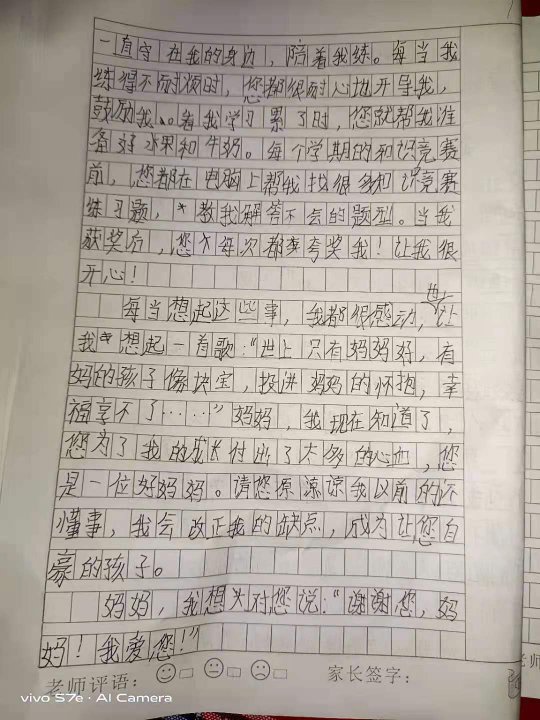 一直守在我的身边，陪着我练。每当我
练得不耐烦时，您都很耐心地开导我，
鼓励我。看我学习累了时，您就帮我准
备好水果和牛奶。每个学期的知识竞赛
前，您都在电脑上帮我找很多知识竞赛
练习题，教我解答不会的题型。当我
获奖后，您每次都夸奖我！让我很
开心！
每当想起这些事，我都很感动，也让
我想起一首歌：“世上只有妈妈好，有
妈的孩子像块宝，投进妈妈的怀抱，幸
福享不了……”妈妈，我现在知道了，
您为了我的成长付出了太多的心血，您
是一位好妈妈。请您原谅我以前的不
懂事，我会改正我的缺点，成为让您自
豪的孩子。
妈妈，我想对您说：“谢谢您，妈
妈！我爱您！”
老师评语： 家长签字：
vivo S7e·AI Camera